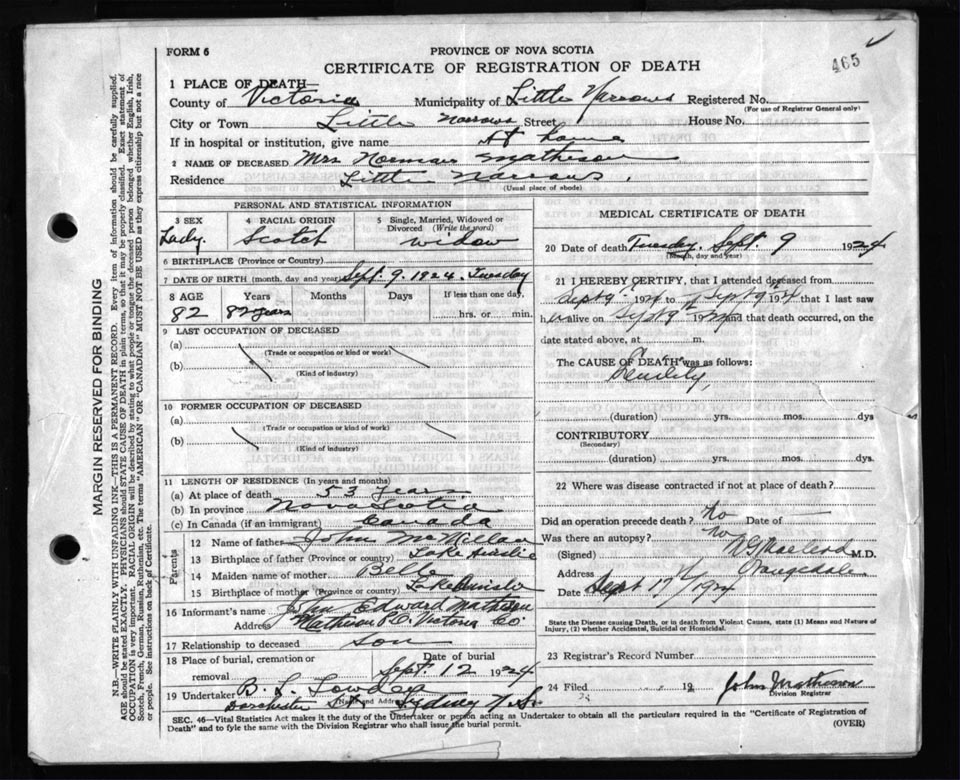 465
FORM 6
PROVINCE OF NOVA SCOTIA
CERTIFICATE OF REGISTRATION OF DEATH
1 PLACE OF DEATH
County of Victoria Municipality of Little Narrows Registered No.
(For use of Registrar General only)
City or Town Little Narrows Street House No.
If in hospital or institution, give name At home
2 NAME OF DECEASED Mrs Norman Matheson
Residence Little Narrows.
(Usual place of abode)
PERSONAL AND STATISTICAL INFORMATION
3 SEX 4 RACIAL ORIGIN 5 Single, Married, Widowed or Divorced (Write the word)
Lady. Scotch widow
6 BIRTHPLACE (Province or Country)
7 DATE OF BIRTH (month, day and year) Sept. 9. 1924. Tuesday
8 AGE Years Months Days If less than one day
82 82 years hrs. or min.
9 LAST OCCUPATION OF DECEASED
(a)
(Trade or occupation or kind or work)
(b)
(Kind of industry)
10 FORMER OCCUPATION OF DECEASED
(a)
(Trade or occupation or kind of work)
(b)
(Kind of industry)
11 LENGTH OF RESIDENCE (In years and months)
(a) At place of death 53 years
(b) In province Nova Scotia
(c) In Canada (if an immigrant) Canada
Parents
12 Name of father John McMillan
13 Birthplace of father (Province or country) Lake Ainslie
14 Maiden name of mother Belle
15 Birthplace of mother (Province or country) Lake Ainslie
16 Informant's name John Edward Matheson
Address Matheson P.O. Victoria Co
17 Relationship to deceased son
18 Place of burial, cremation or removal Date of burial
Sept. 12 1924
19 Undertaker B. L.
(Name and Address)
Dorchester St. Sydney N.S.
MEDICAL CERTIFICATE OF DEATH
20 Date of death Tuesday, Sept. 9 1924
(Month, day and year)
21 I HEREBY CERTIFY, that I attended deceased from
Sept 9 1924 to Sept 9 1924 that I last saw
h alive on Sept 9 1924 and that death occurred, on
date stated above, at m.
The CAUSE OF DEATH was as follows:
Senility,
(duration) yrs. mos. dys
CONTRIBUTORY
(Secondary)
(duration) yrs. mos. dys
22 Where was disease contracted if not at place of death?
Did an operation precede death? No Date of —
Was there an autopsy? No
(Signed) MacLeod M.D.
Address Orangedale
Date Sept 17 1924
State the Disease causing Death, or in death from Violent Causes, state (1) Means and Nature of Injury, (2) whether Accidental, Suicidal or Homicidal.
23 Registrar's Record Number
24 Filed 19 John Matheson
Division Registrar
SEC. 46—Vital Statistics Act makes it the duty of the Undertaker or person acting as Undertaker to obtain all the particulars required in the "Certificate of Registration of
Death" and to file the same with the Division Registrar who shall issue the burial permit. (OVER)
MARGIN RESERVED FOR BINDING
N.B.—WRITE PLAINLY WITH UNFADING INK—THIS IS A PERMANENT RECORD. Every item of information should be carefully supplied.
AGE should be stated EXACTLY. PHYSICIANS should STATE CAUSE OF DEATH in plain terms, so that it may be properly classified. Exact statement of
OCCUPATION is very important. RACIAL ORIGIN will be described by stating to what people or tongue the deceased person belonged whether English, Irish,
Scotch, French, German, Russian, Ruthenian, etc. The terms "AMERICAN" OR "CANADIAN" MUST NOT BE USED as they express citizenship but not a race
or people. See instructions on back of Certificate.